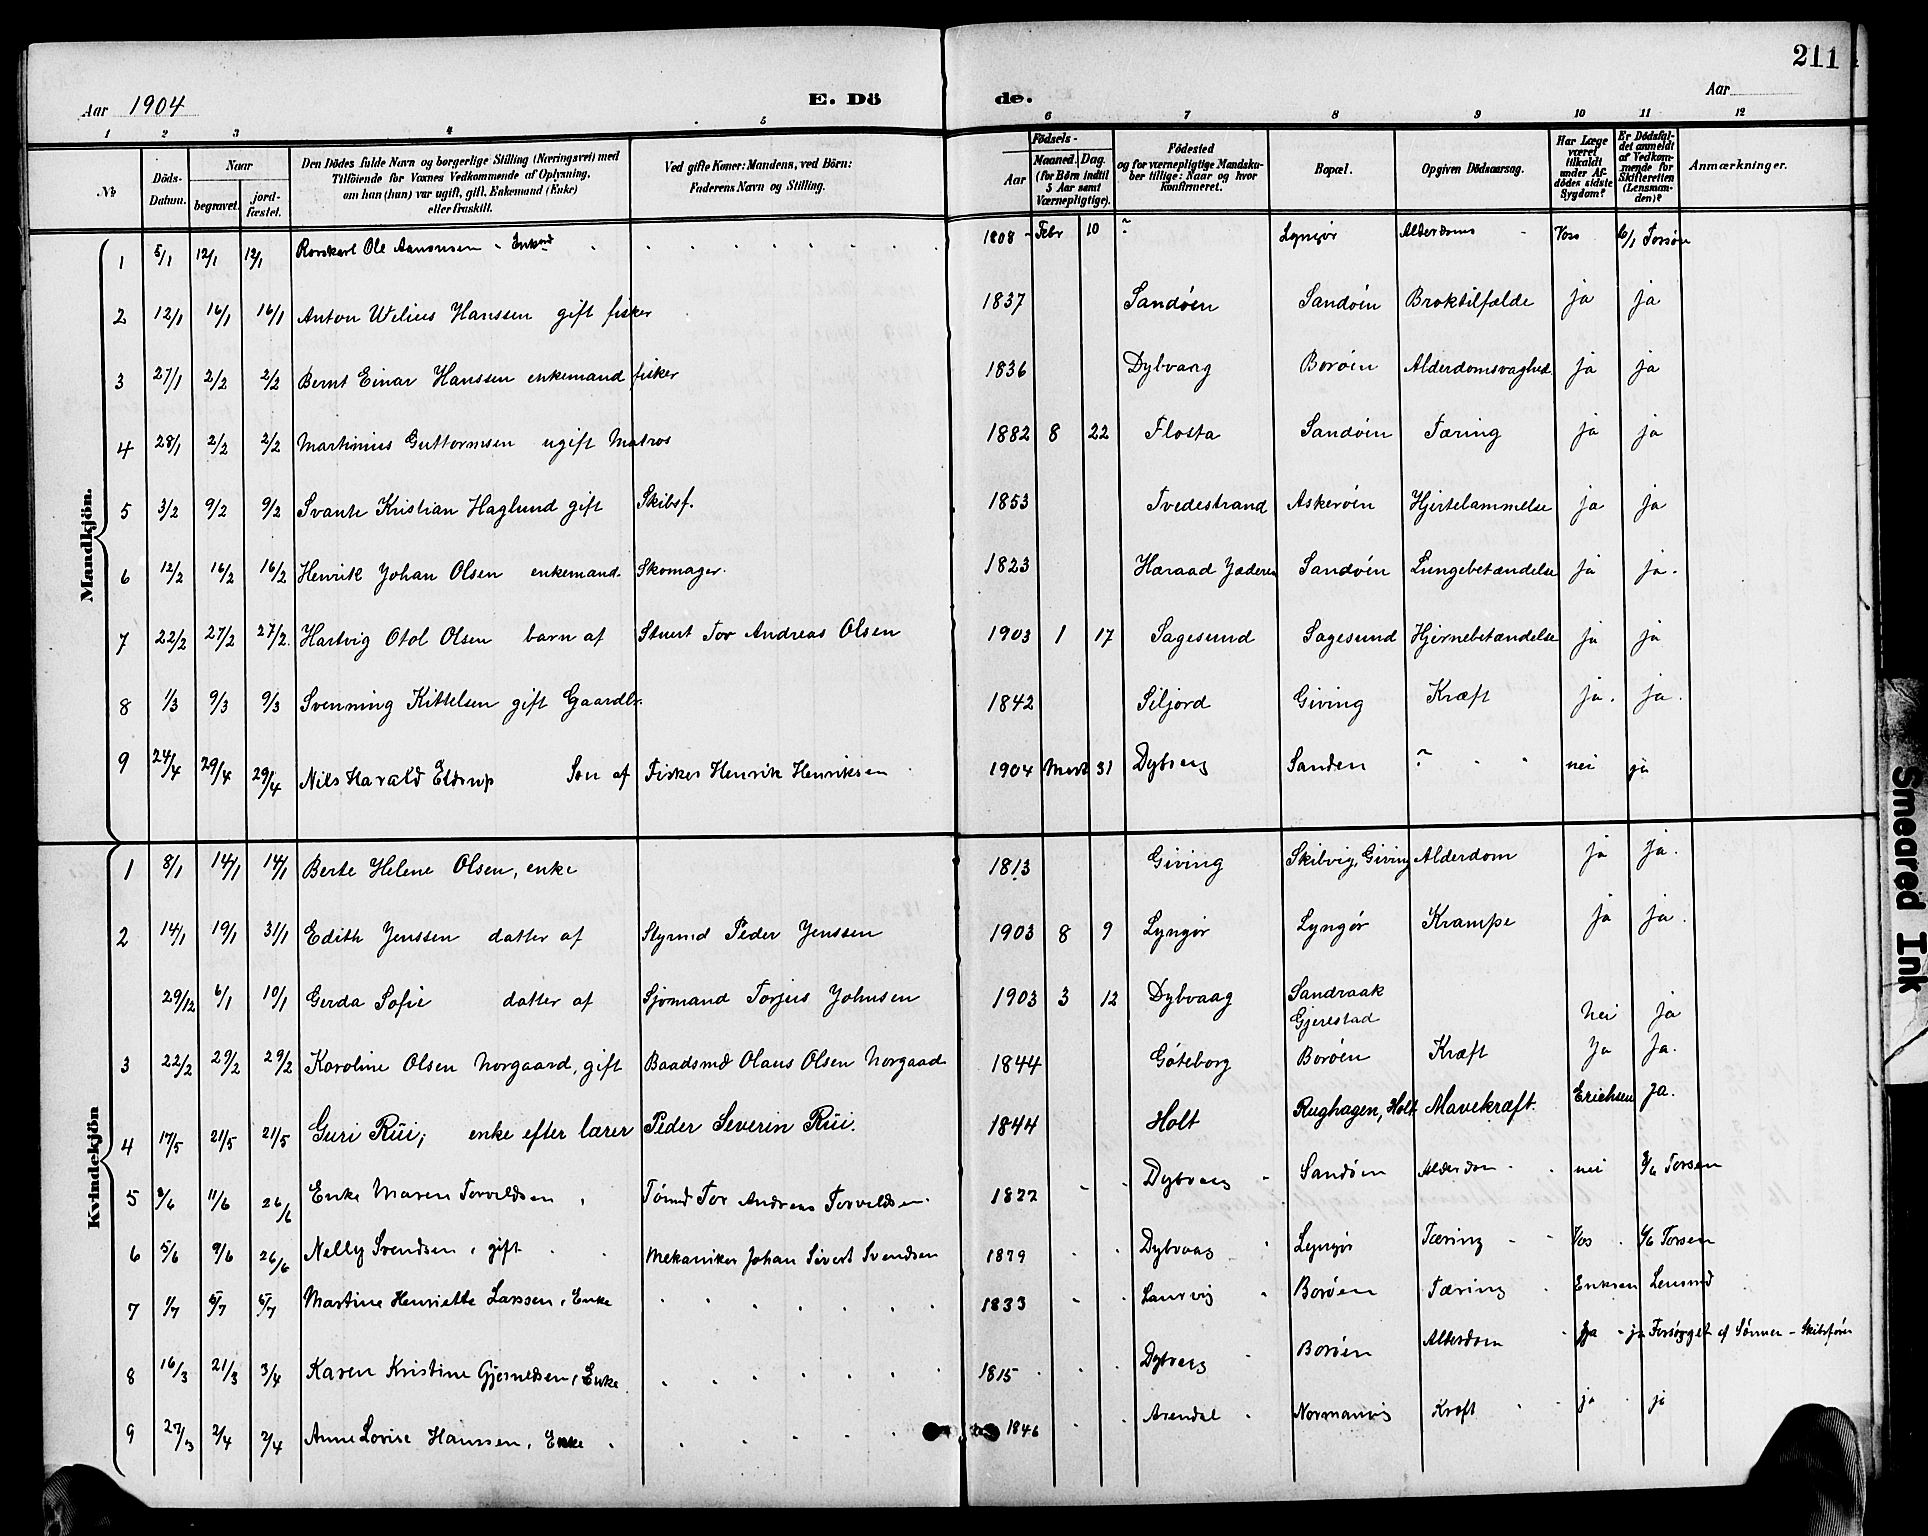 211
Aar 1904 E. Dö de. Aar
1 2 3 4 5 6 7 8 9 10 11 12
№ Döds-Datum. Naar begravet. jord-fæstet. Den Dödes fulde Navn og borgerlige Stilling (Næringsvei) med Tilföiende for Voxnes Vedkommende af Oplysning, om han (hun) var ugift, gift, Enkemand (Enke) eller fraskilt. Ved gifte Koner: Mandens, ved Börn: Faderens Navn og Stilling. Födsels- Aar Maaned. Dag. (for Börn indtil 5 Aar samt Værnepligtige). Födested og for værnepligtige Mandskaber tillige: Naar og hvor konfirmeret. Bopæl. Opgiven Dödsaarsag. Har Læge været tilkaldt under Afdödes sidste Sygdom? Er Dödsfaldet anmeldt af Vedkommende for Skifteretten (Lensmanden)? Anmærkninger.
Mandkjön.
1 5/1 12/1 12/1 Ole Aanonsen - Enkemd 1808 - Febr 10 ~ Lyngør Alderdoms Voss 6/1 Torsøn
2 12/1 16/1 16/1 Anton Wilius Hanssen gift fisker 1837 Sandøen Sandøen Broktilfælde ja ja
3 27/1 2/2 2/2 Bernt Einar Hanssen enkemand fisker 1836 Dybvaag Borøen Alderdomsvaghed ja ja
4 28/1 2/2 2/2 Martinius Guttormsen ugift Matros 1882 8 22 Flosta Sandøen Tæring ja ja
5 3/2 9/2 9/2 Svante Kristian Haglund gift Skibsf. 1853 Tvedestrand Askerøen Hjertelammelse ja ja
6 12/2 16/2 16/2 Henrik Johan Olsen enkemand. Skomager. 1823 Haraad Jæderen Sandøen Lungebetændelse ja ja.
7 22/2 27/2 27/2. Hartvig Otol Olsen barn af Stuert Tor Andreas Olsen 1903 1 17 Sagesund Sagesund Hjernebetændelse ja ja
8 1/3 9/3 9/3 Svenning Kittelsen gift Gaardbr. 1842 Siljord Giving Kræft ja. ja.
9 24/4 29/4 29/4 Nils Harald Eldrup Søn af Fisker Henrik Henriksen 1904 Mart 31 Dybvaag Sanden ? nei ja
Kvindekjön
1 8/1 14/1 14/1 Berte Helene Olsen, enke 1813 Giving Skibvig, Giving Alderdom ja ja.
2 14/1 19/1 31/1 Edith Jenssen datter af Styrmd Peder Jenssen 1903 8 9 Lyngør Lyngør Krampe ja ja.
29/12 6/1 10/1 Gerda Sofie datter af Sjømand Torjus Johnsen 1903 3 12 Dybvaag Sandraak Gjerestad Nei ja
3 22/2 29/2 29/2 Karoline Olsen Norgaard, gift Baadsmd Olaus Olsen Norgaad 1844 Göteborg Borøen Kræft Ja Ja.
4 17/5 21/5 21/5 Guri Rüi, enke efter lærer Peder Severin Rüi. 1844 Holt Rughagen, Holt Mavekræft. Erichsen Ja.
5 2/6 11/6 26/6 Enke Maren Torvildsen Tømd Tor Andreas Torvildsen. 1822 Dybvaag Sandøen Alderdom nei 3/6 Torsen
6 5/6 9/6 26/6 Nelly Svendsen, gift Mekaniker Johan Sivert Svendsen 1879 Dybvaag Lyngør Tæring Vos 6/6 Torsen
7 1/7 5/7 5/7 Martine Henriette Larssen, Enke 1833 Laurvig Borøen Tæring Eriksen Lensmd
8 16/3 21/3 3/4 Karen Kristine Gjeruldsen, Enke 1815 Dybvaag Borøen Alderdom ja - ja Forsørget af Sønner - Skibsfører
9 27/3 2/4 2/4 Anne Lovise Hanssen, Enke 1846 Arendal Normanvig Kræft ja ja
Smeared Ink